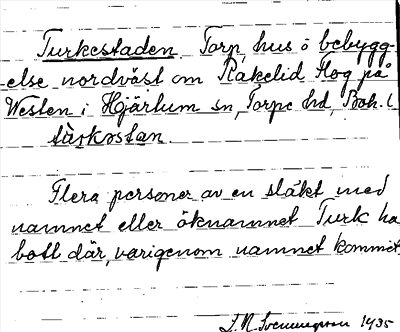 Turkestaden. Torp, hus o bebygg-
else nordväst om Räkelid Hog på
Westen i Hjärtum sn, Torpe hd, Boh. l
tùrkostan.
Flera personer av en släkt med
namnet eller öknamnet Turk ha
bott där, varigenom namnet kommit.
1935